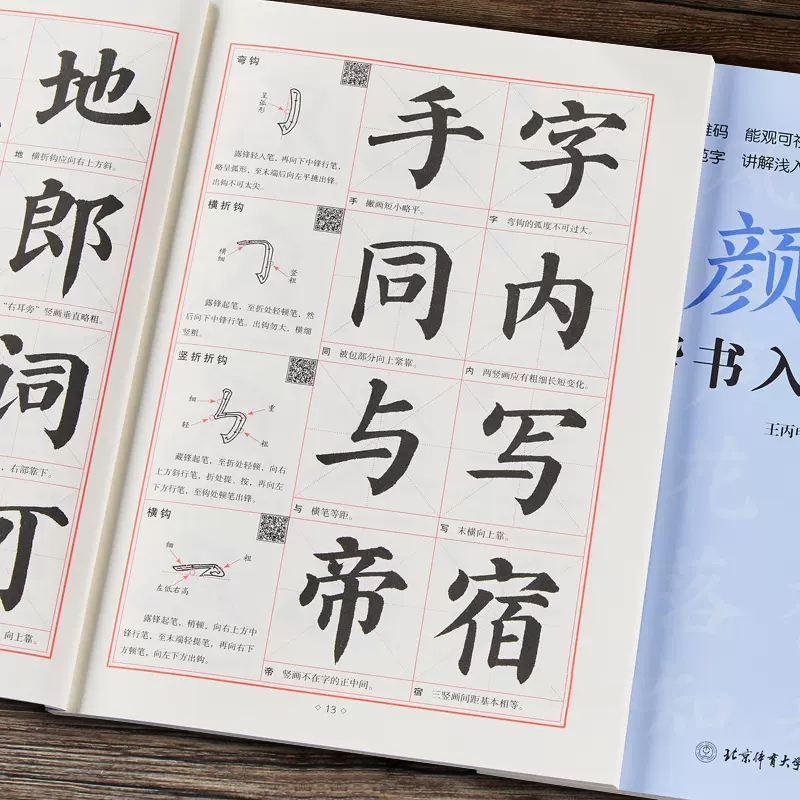 地
地 横折钩应向右上方斜。
郎
“右耳旁”竖画垂直略粗。
词
，右部靠下。
可
向上靠。
弯钩
呈弧形
露锋轻入笔，再向下中锋行笔，
略呈弧形，至末端后向左平挑出锋。
出钩不可太尖。
手
手 撇画短小略平。
字
字 弯钩的弧度不可过大。
横折钩
横细
竖粗
露锋起笔，至折处轻顿笔，然
后向下中锋行笔。出钩勿大，横细
竖粗。
同
同 被包部分向上紧靠。
内
内 两竖画应有粗细长短变化。
竖折折钩
细
重
轻
粗
藏锋起笔，至折处轻顿，向右
上方斜行笔，折处提、按，再向左
下方行笔，至钩处顿笔出锋。
与
与 横笔等距。
写
写 末横向上靠。
横钩
细
粗
左低右高
露锋起笔，稍顿，向右上方中
锋行笔，至末端轻提笔，再向右下
方顿笔，向左下方出钩。
帝
帝 竖画不在字的正中间。
宿
宿 三竖画间距基本相等。
◇ 13 ◇
维码 能观可视
范字 讲解浅入
颜
楷书入
王丙申
花
落
知
北京体育大学